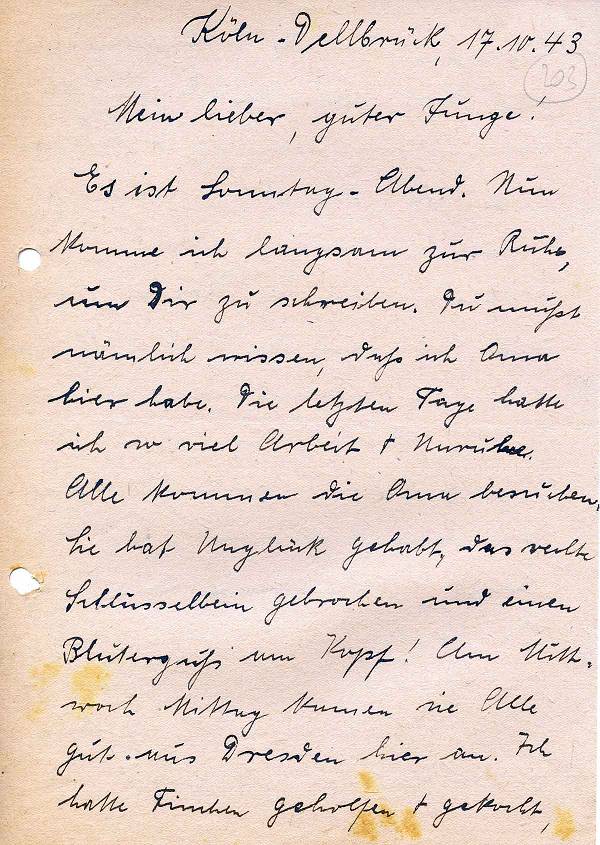 Köln-Dellbrück, 17.10.43
203
Mein lieber, guter Junge!
Es ist Sonntag-Abend. Nun
komme ich langsam zur Ruhe,
um Dir zu schreiben. Du mußt
nämlich wissen, daß ich Oma
hier habe. Die letzten Tage hatte
ich so viel Arbeit + Unruhe.
Alle kommen die Oma besuchen.
Sie hat Unglück gehabt, das rechte
Schlüsselbein gebrochen und einen
Bluterguß am Kopf! Am Mitt-
woch Mittag kamen sie Alle
gut aus Dresden hier an. Ich
hatte Finchen geholfen + gekocht,